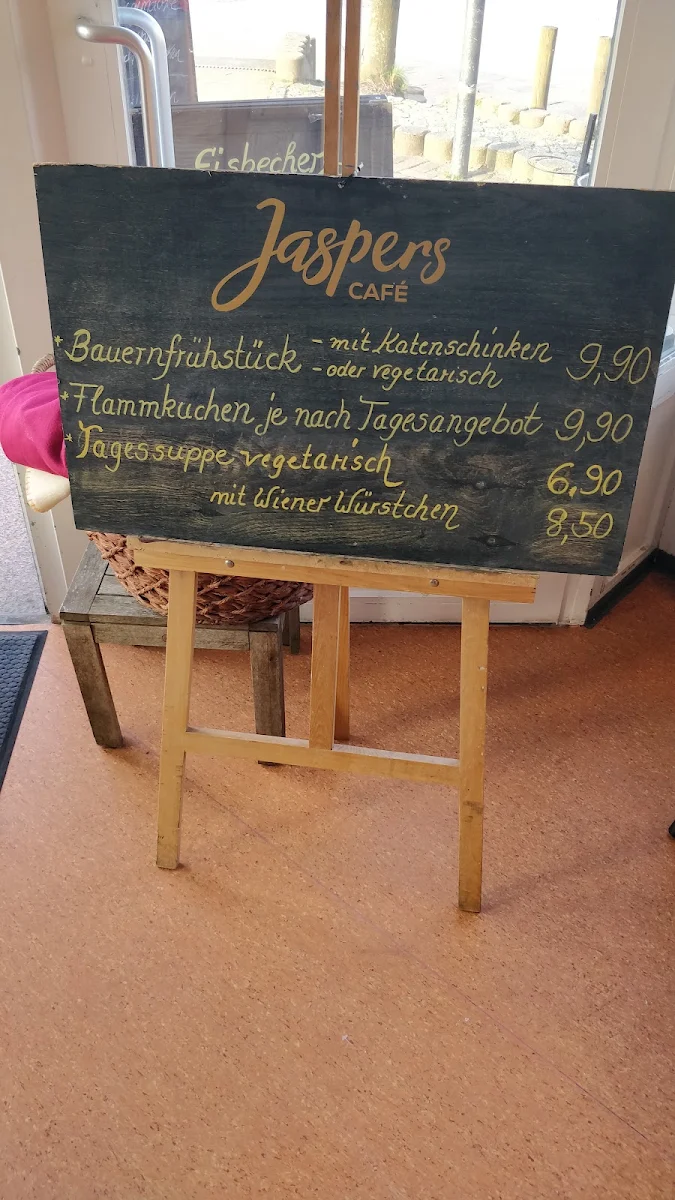 Eisbecher
Jaspers
CAFÉ
*Bauernfrühstück - mit Katenschinken 9,90
- oder vegetarisch
*Flammkuchen je nach Tagesangebot 9,90
*Tagessuppe vegetarisch 6,90
mit Wiener Würstchen 8,50